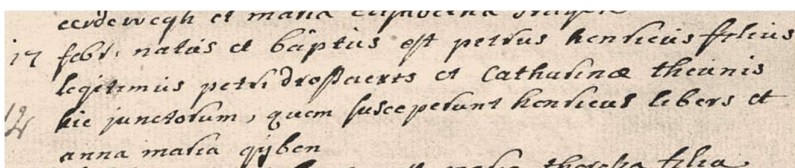 et maria
17 febr. natus et baptus est petrus henricus filius
legitimus petri drossaerts et Catharinæ theunis
hic junctorum, quem susceperunt henricus libers et
anna maria gijben
filia